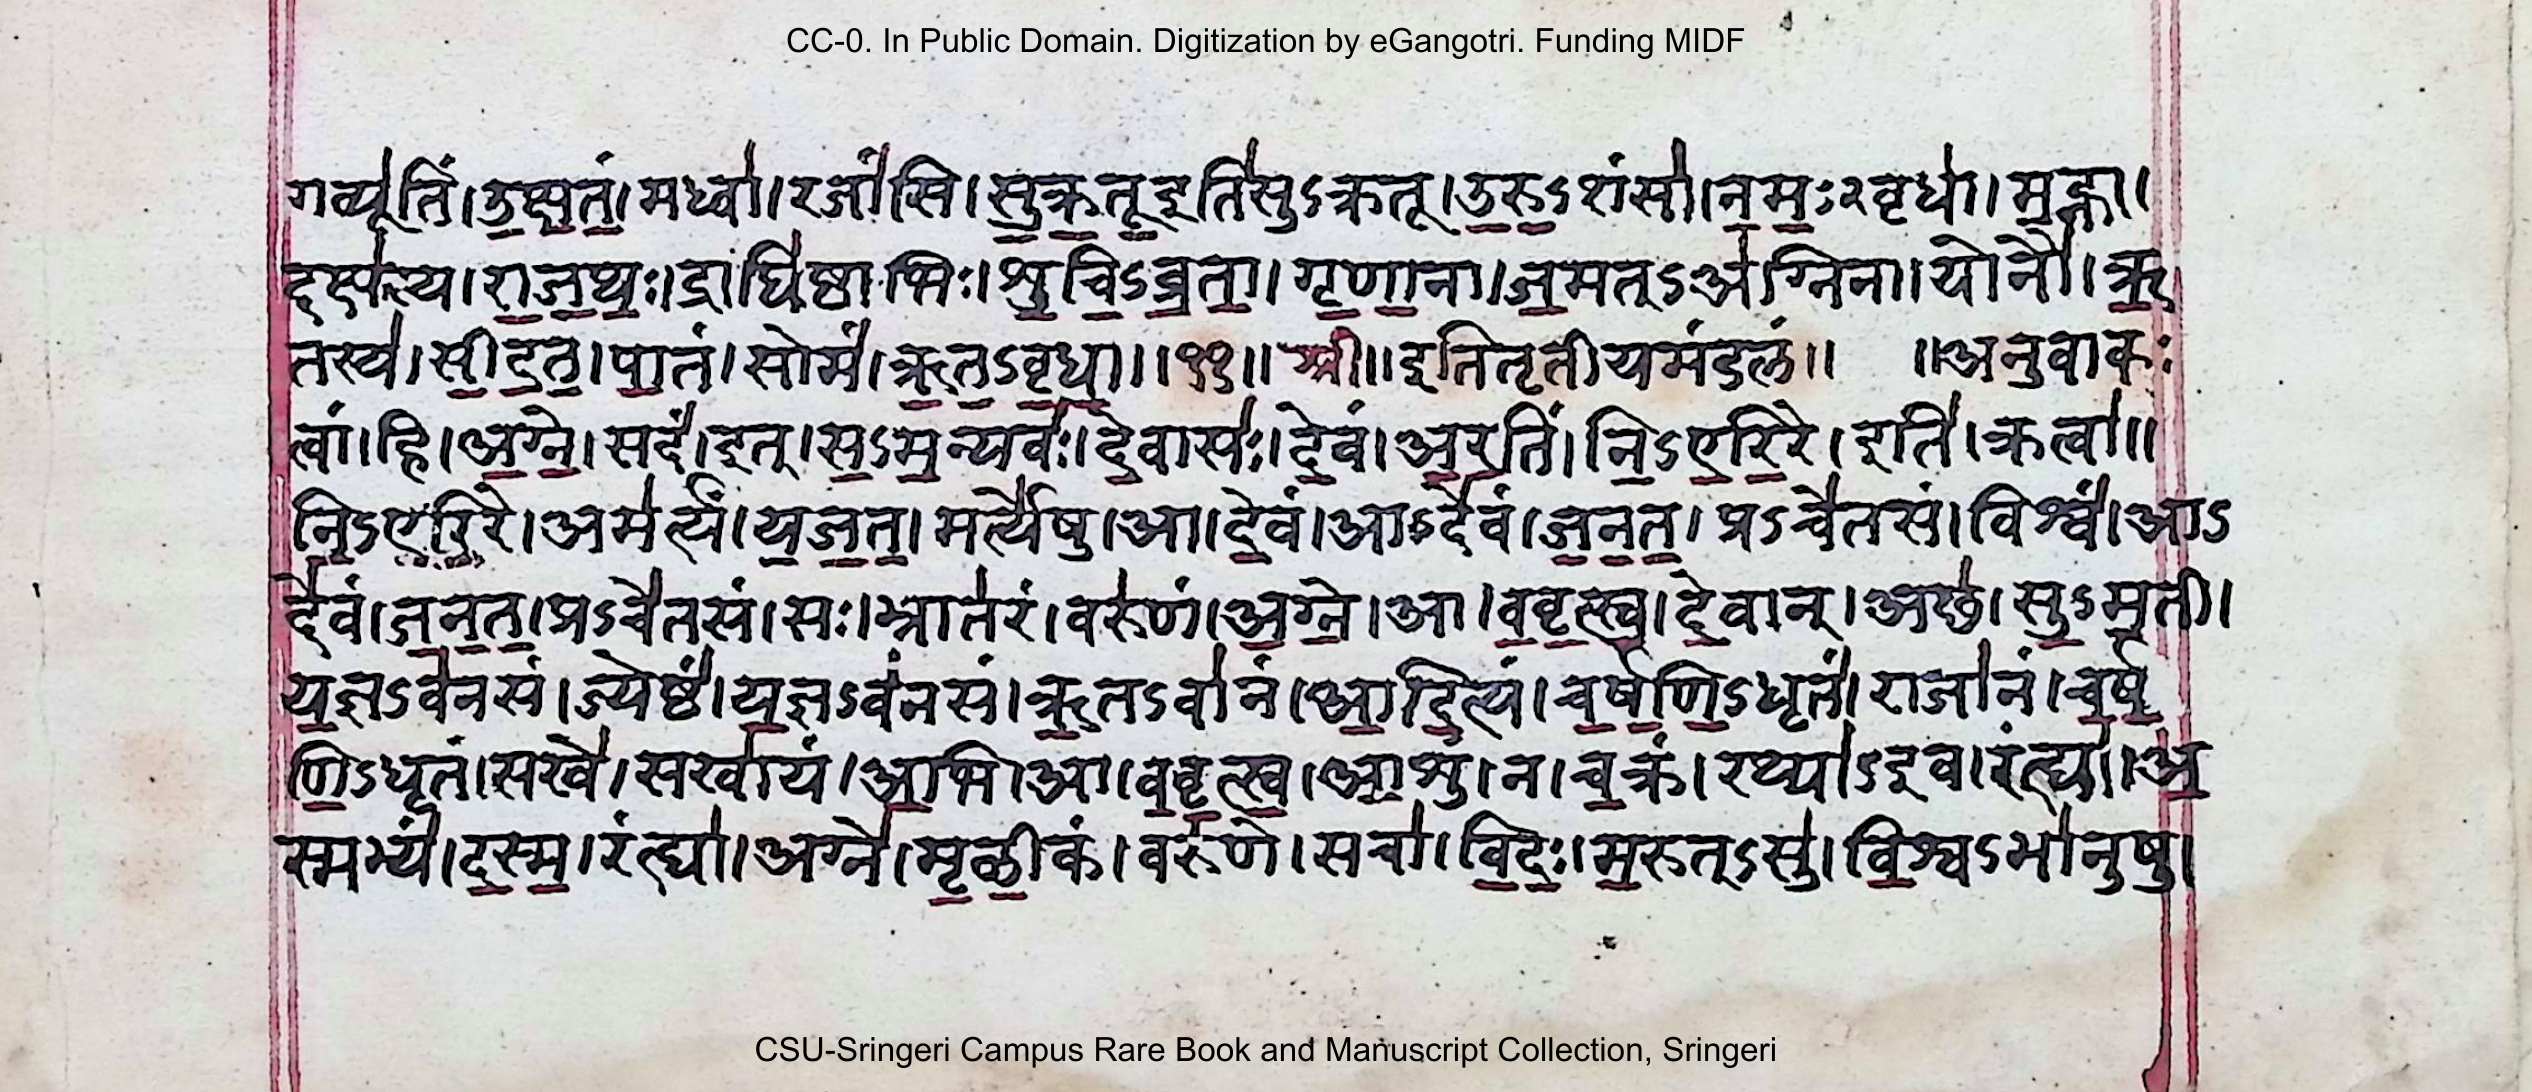 CC-0. In Public Domain. Digitization by eGangotri. Funding MIDF
गव्यू॑तिं। उ॒क्ष॒तं॒। मध्वा॑। रजां॑सि। सु॒क्र॒तू॒ इति॑ सुऽक्रतू। उ॒रु॒ऽशंसा॑। न॒मः॒ऽवृधा॑। म॒ह्ना।
दक्ष॑स्य। रा॒ज॒थः॒। द्राघि॑ष्ठाभिः। शु॒चि॒ऽव्र॒ता॒। गृ॒णा॒ना। ज॒मत्ऽअ॑ग्निना। योनौ॑। ऋ॒
तस्य॑। सी॒द॒त॒। पा॒तं। सोमं॑। ऋ॒त॒ऽवृ॒धा॒॥ ११॥ श्री॥ इति तृतीयमंडलं॥ ॥अनुवाकः
त्वां। हि। अ॒ग्ने॒। सदं॑। इत्। स॒ऽम॒न्यवः॑। दे॒वासः॑। दे॒वं। अ॒र॒तिं। नि॒ऽए॒रि॒रे। इति॑। क्रत्वा॑॥
नि॒ऽए॒रि॒रे। अम॑र्त्यं। य॒ज॒त॒। मर्त्ये॑षु। आ। दे॒वं। आऽदे॑वं। ज॒न॒त॒। प्रऽचे॑तसं। विश्वं॑। आऽ
दे॑वं। ज॒न॒त॒। प्रऽचे॑तसं। सः। भ्रात॑रं। वरु॑णं। अ॒ग्ने॒। आ। व॒वृ॒त्स्व॒। दे॒वान्। अछ॑। सु॒ऽम॒ती।
य॒ज्ञऽव॑नसं। ज्येष्ठं॑। य॒ज्ञऽव॑नसं। ऋ॒तऽवा॑नं। आ॒दि॒त्यं। च॒र्ष॒णि॒ऽधृतं॑। राजा॑नं। च॒र्ष॒
णि॒ऽधृतं॑। सखे॑। सखा॑यं। आ॒भि। आ। व॒वृ॒त्स्व॒। आ॒शुं। न। च॒क्रं। रथ्या॑ऽइव। रंह्या॑। अ॒
स्मभ्यं॑। द॒स्म॒। रंह्या॑। अग्ने॑। मृ॒ळी॒कं। वरु॑णे। सचा॑। वि॒दः॒। म॒रुत्ऽसु॑। वि॒श्वऽभा॑नुषु।
CSU-Sringeri Campus Rare Book and Manuscript Collection, Sringeri